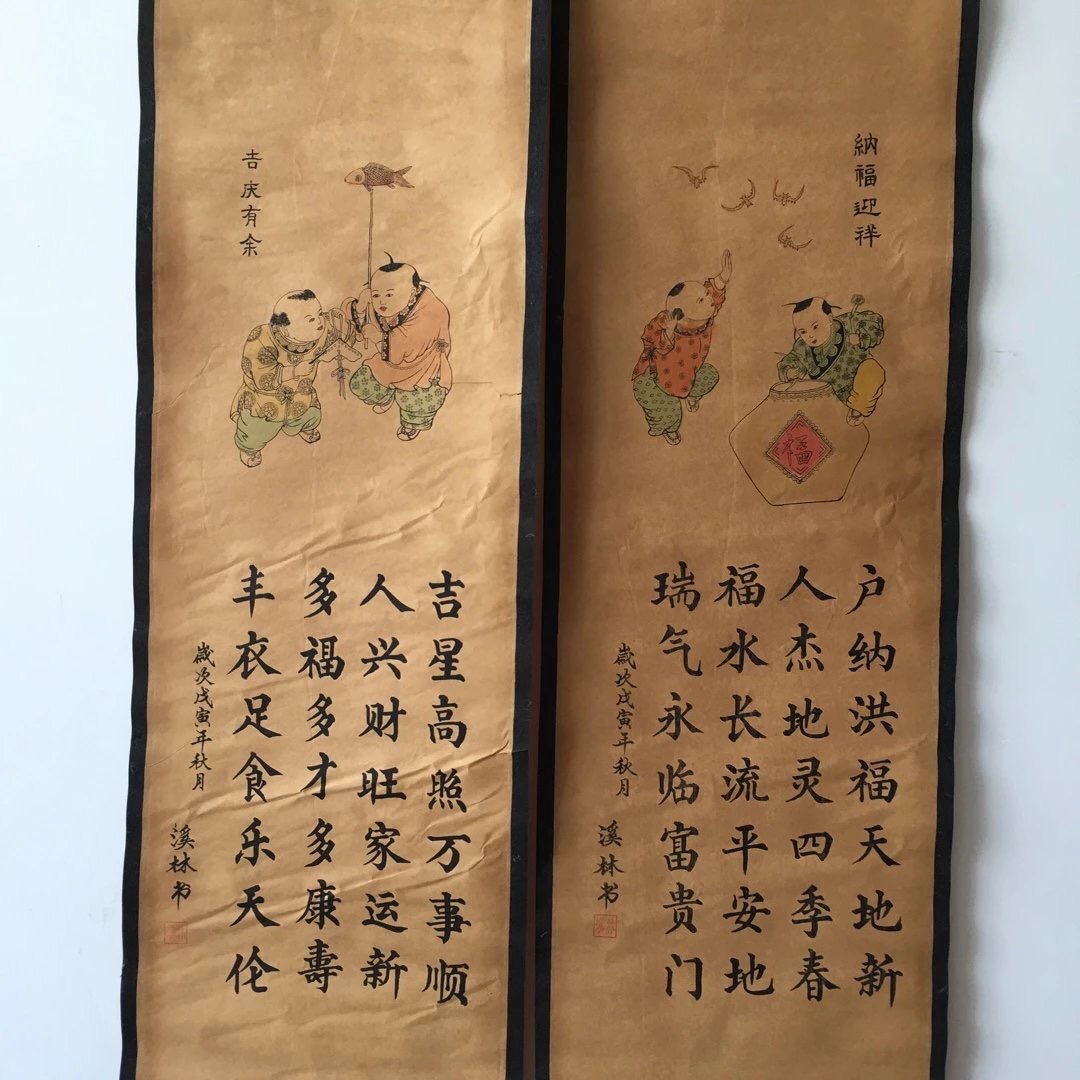 納福迎祥
户纳洪福天地新
人杰地灵四季春
福水长流平安地
瑞气永临富贵门
歲次戊寅年秋月
溪林书
吉庆有余
吉星高照万事顺
人兴财旺家运新
多福多才多康壽
丰衣足食乐天伦
歲次戊寅年秋月
溪林书